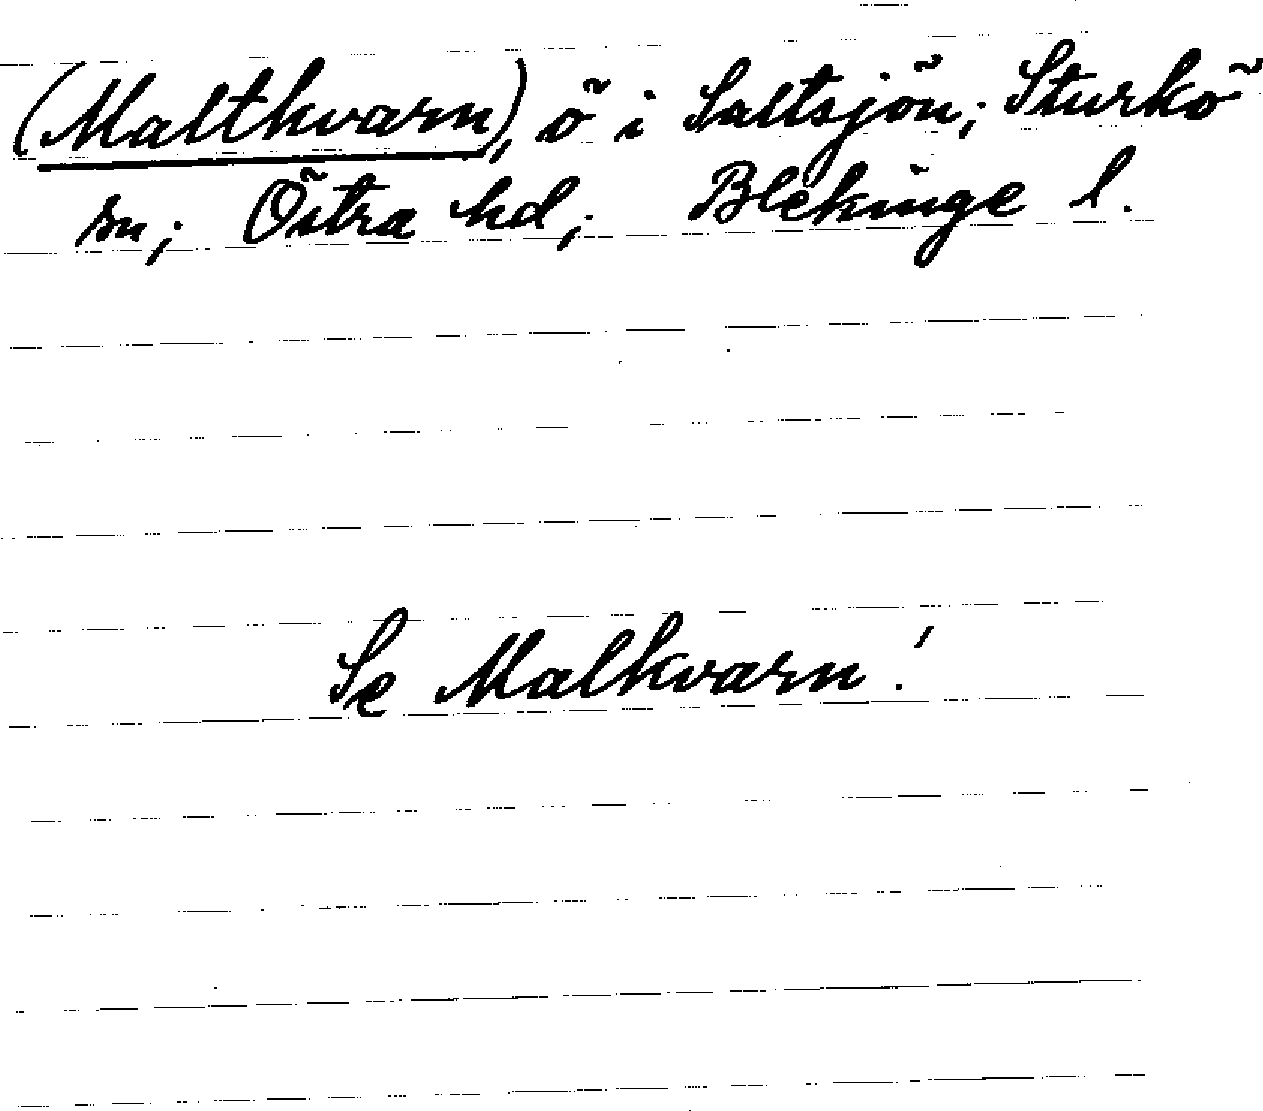 (Maltkvarn), ö i Saltsjön; Sturkö
sn; Östra hd; Blekinge l.
Se Malkvarn!